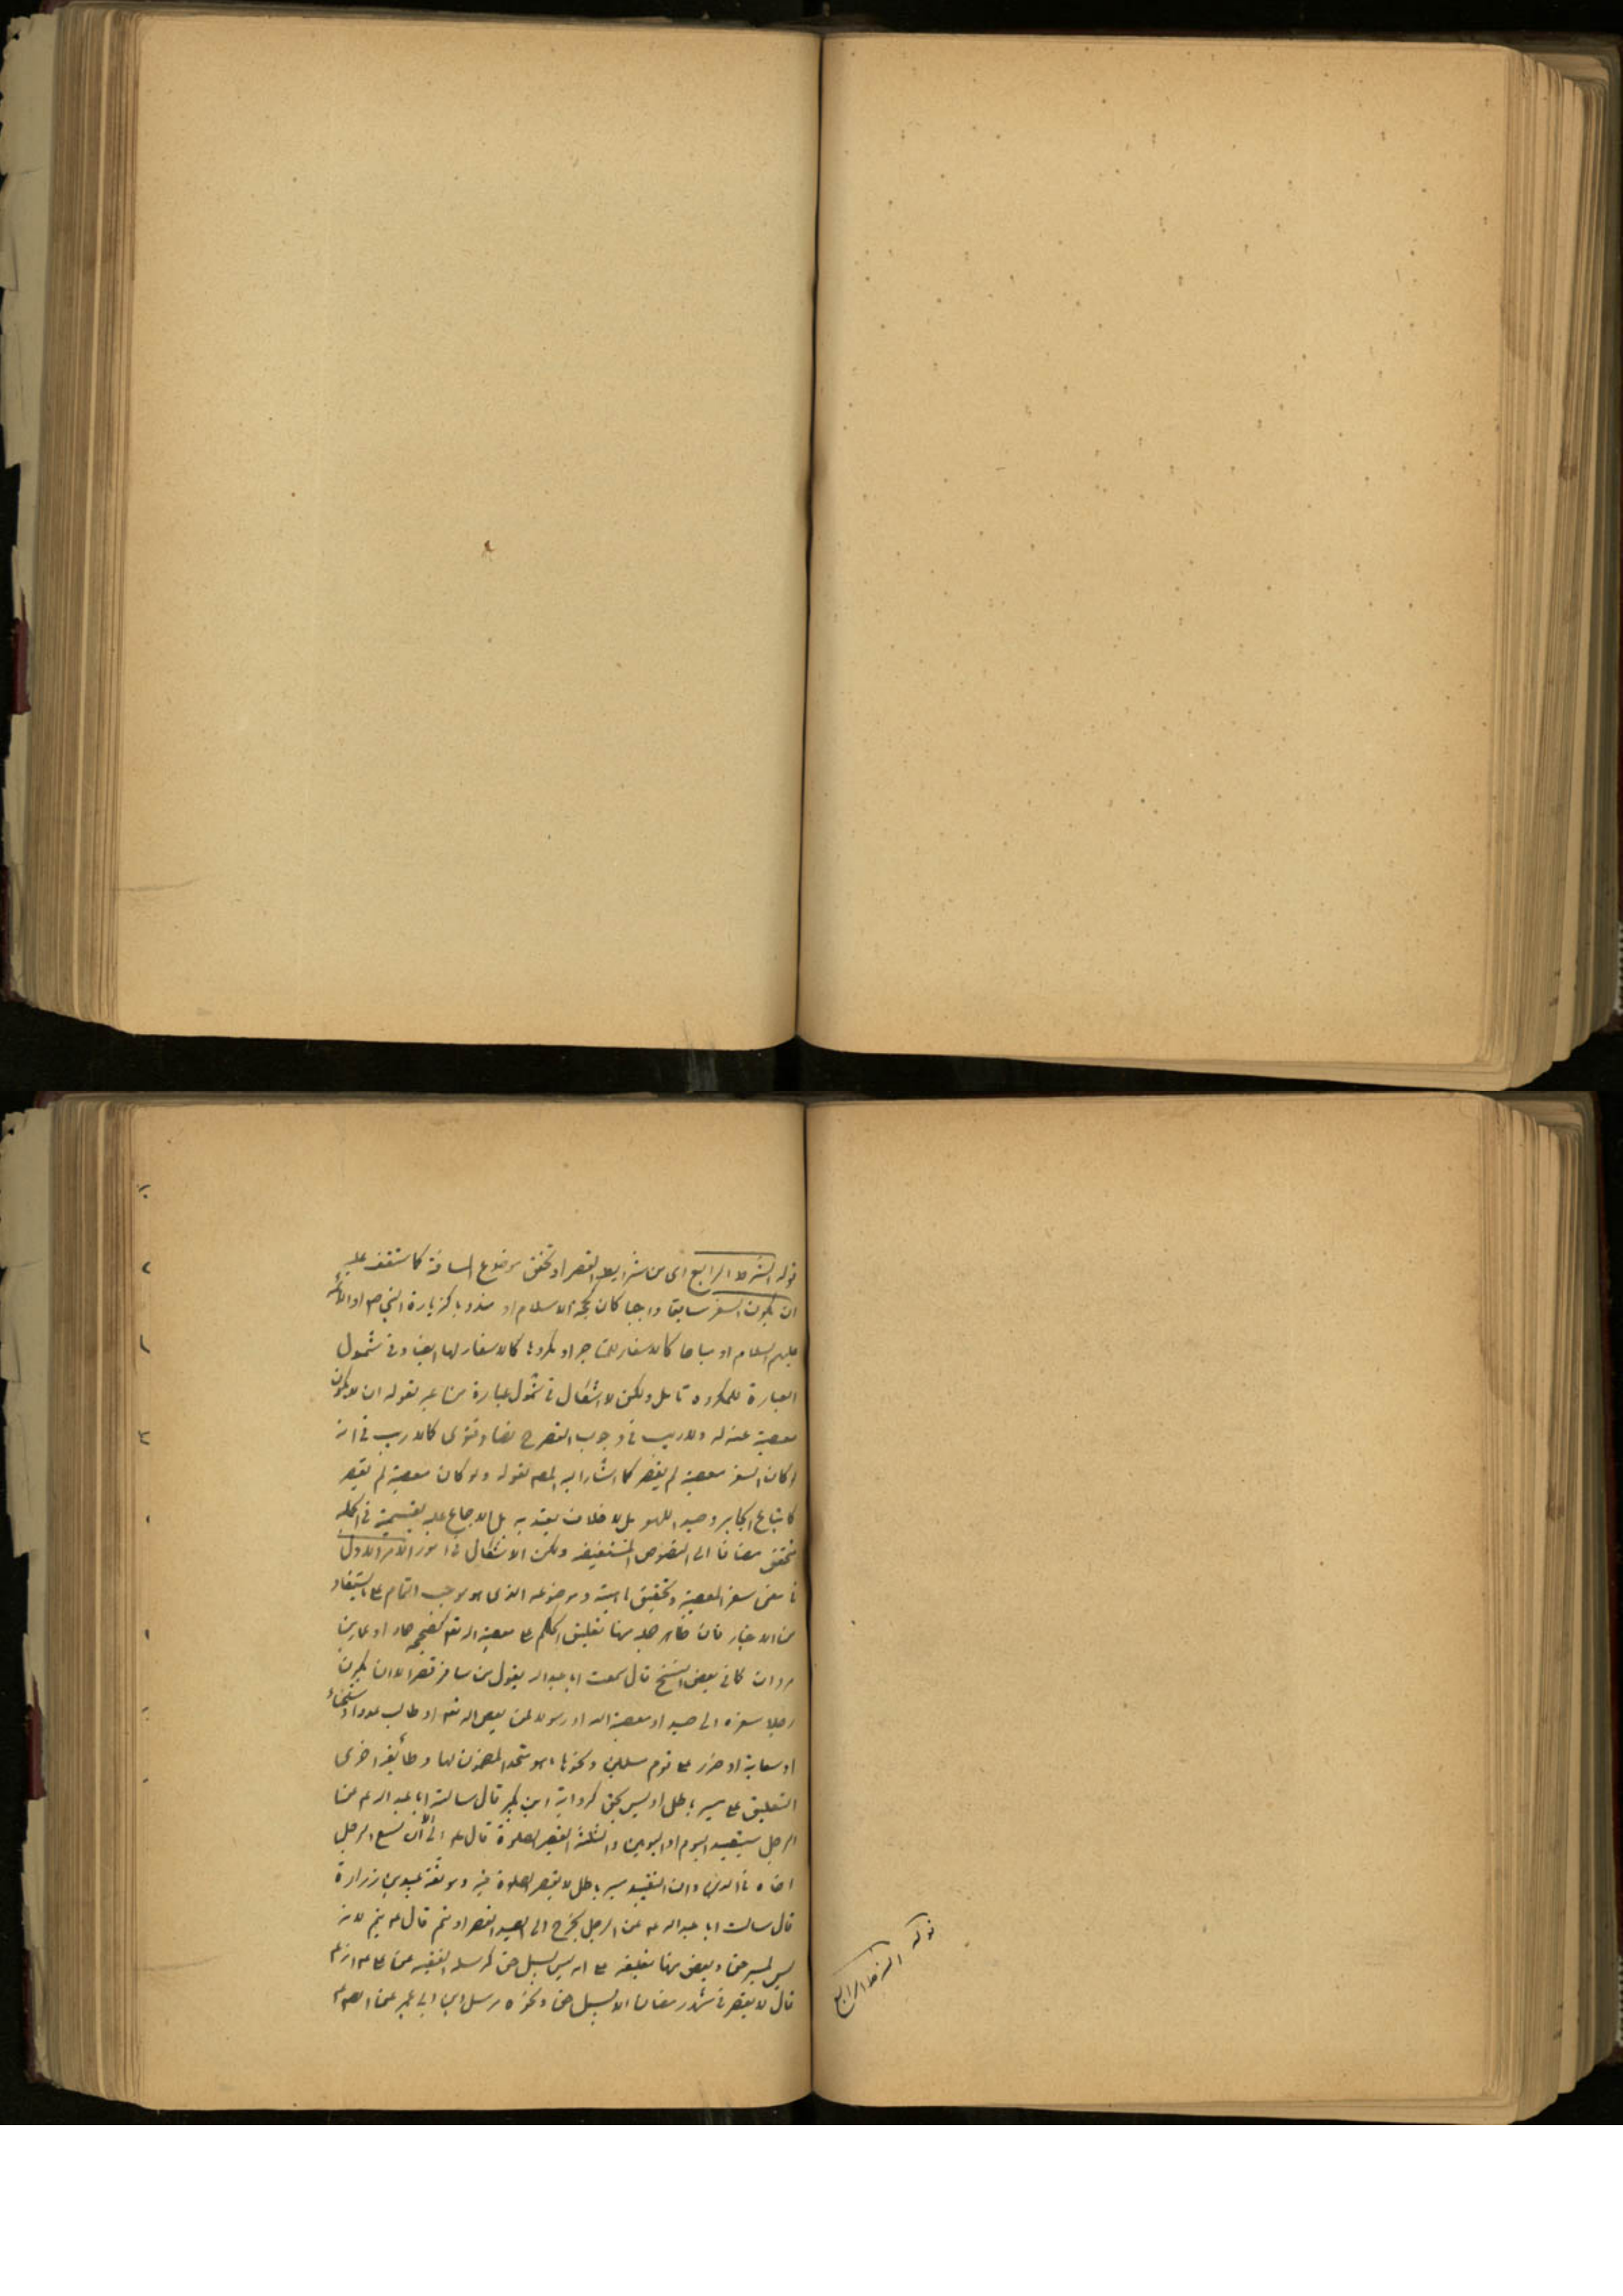 قوله الشرط الرابع اى من شرايط القصر او تحقق موضوع المسافة كما ستقف عليه
ان يكون السفر سايغا واجبا كان كحجة الاسلام او مندوبا كزيارة النبي ص او الائمة
عليهم السلام او مباحا كالاسفار للمتاجر او مكروها كالاسفار لها ايضا وفى شمول
العبارة للمكروه تامل ولكن لا اشكال فى شمول عبارة من عبر بقوله ان لا يكون
معصية له ولا ريب فى وجوب القصر ح نصا وفتوى كما لا ريب فى انه
لو كان السفر معصية لم يقصر كما اشار اليه المصـ بقوله ولو كان معصية لم يقصر
كاتباع الجاير وصيد اللهو بل لا خلاف يعتد به بل الاجماع عليه بقسميه فى الجملة
متحقق مضافا الى النصوص المستفيضه ولكن الاشكال فى امور الامر الاول
فى معنى سفر المعصية وتحقيق ماهيته وموضوعه الذى هو موجب التمام على ما يستفاد
من الاخبار فان ظاهر جملة منها تعليق الحكم ع معصية الله تعـ كصحيحه حماد او عمار بن
مروان كما فى بعض النسخ قال سمعت ابا عبد الله يقول من سافر قصر الا ان يكون
رجلا سفره الى صيد او معصية الله او رسولا لمن يعصى الله تعـ او طالب عدو او شحناء
او سعاية او ضرر ع قوم مسلمين ونحوها مما هو متحد المضمون لها وطائفة اخرى
التعليق ع مسير باطل او ليس بحق كرواية ابن بكير قال سالت ابا عبد الله ع عن
الرجل يتصيد اليوم او اليومين والثلثة ايقصر الصلوة قال ع لا الا ان يشيع الرجل
اخاه فى الدين وان التصيد مسير باطل لا يقصر الصلوة فيه وموثقة عبيد بن زرارة
قال سالت ابا عبد الله ع عن الرجل يخرج الى الصيد ايقصر او يتم قال ع يتم لانه
ليس بمسير حق وبعض منها تعليقه ع انه ليس بسبيل حق كمرسلة الفقيه
قال لا يفطر فى شهر رمضان الا بسبيل حق ونحوه مرسل ابن ابى عمير عن
قوله الشرط الرابع